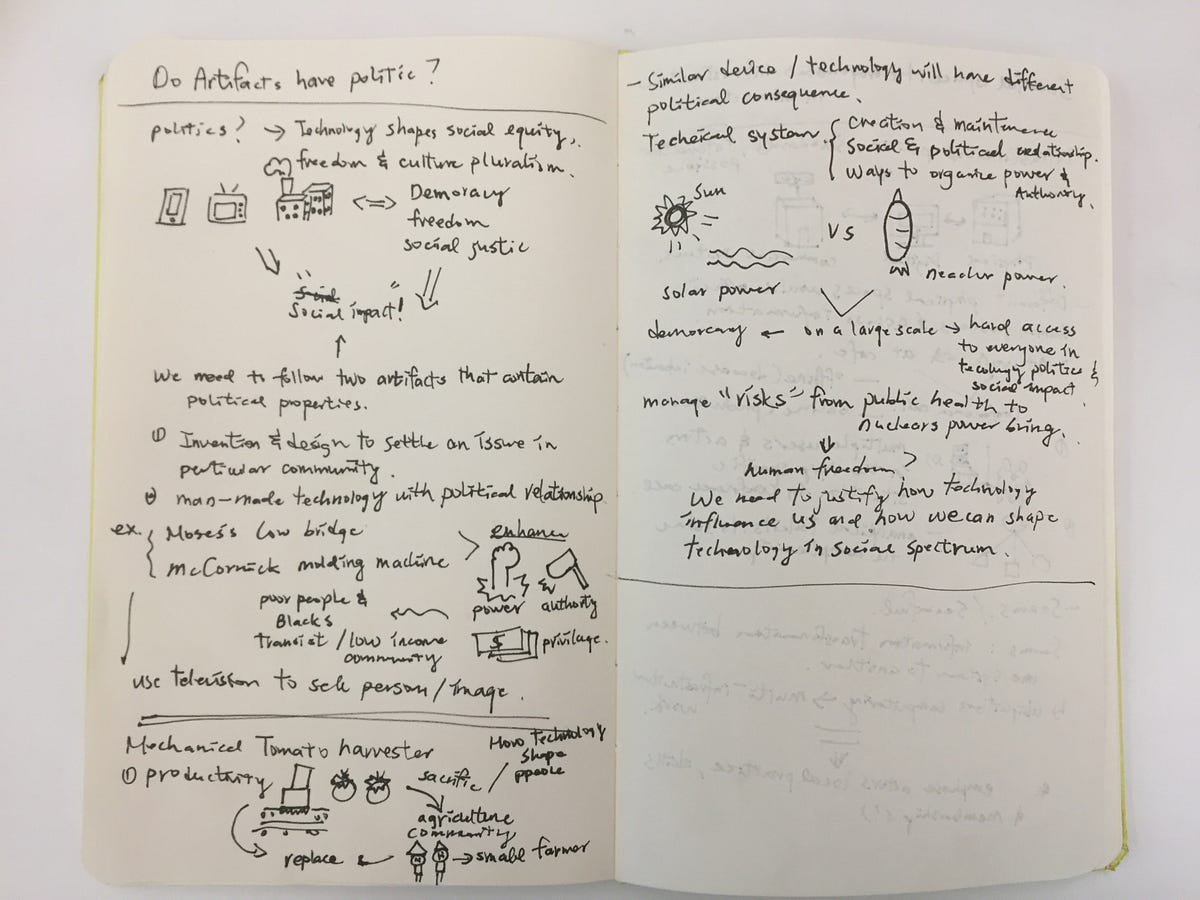 Do Artifacts have politic?
politics? → Technology shapes social equity,
freedom & culture pluralism.
<=> Demoracy
freedom
social justic
"Social impact!"
We need to follow two artifacts that contain
political properties.
① Invention & design to settle an issue in
perticular community.
② man-made technology with political relationship
ex. { Moses's Low bridge
McCornick molding machine
enhance
power
authority
$
privilage.
poor people &
Blacks
Transist / low income
community
use television to sell person/image.
Mechanical Tomato harvester
① productivity
sacrific /
How Technology
shape
ppeole
agriculture
community
replace ← → small farmer
- Similar device / technology will have different
political consequence.
Techeical system { Creation & maintenence
social & political relationship.
Ways to organize power &
Authority.
Sun
VS
solar power
neaclur power.
demorcary ← on a large scale → hard access
to everyone in
tecology politics &
social impact
manage "risks" from public health to
nuclears power bring.
↓
human freedom?
We need to justify how technology
influence us and how we can shape
technology in social spectrum.